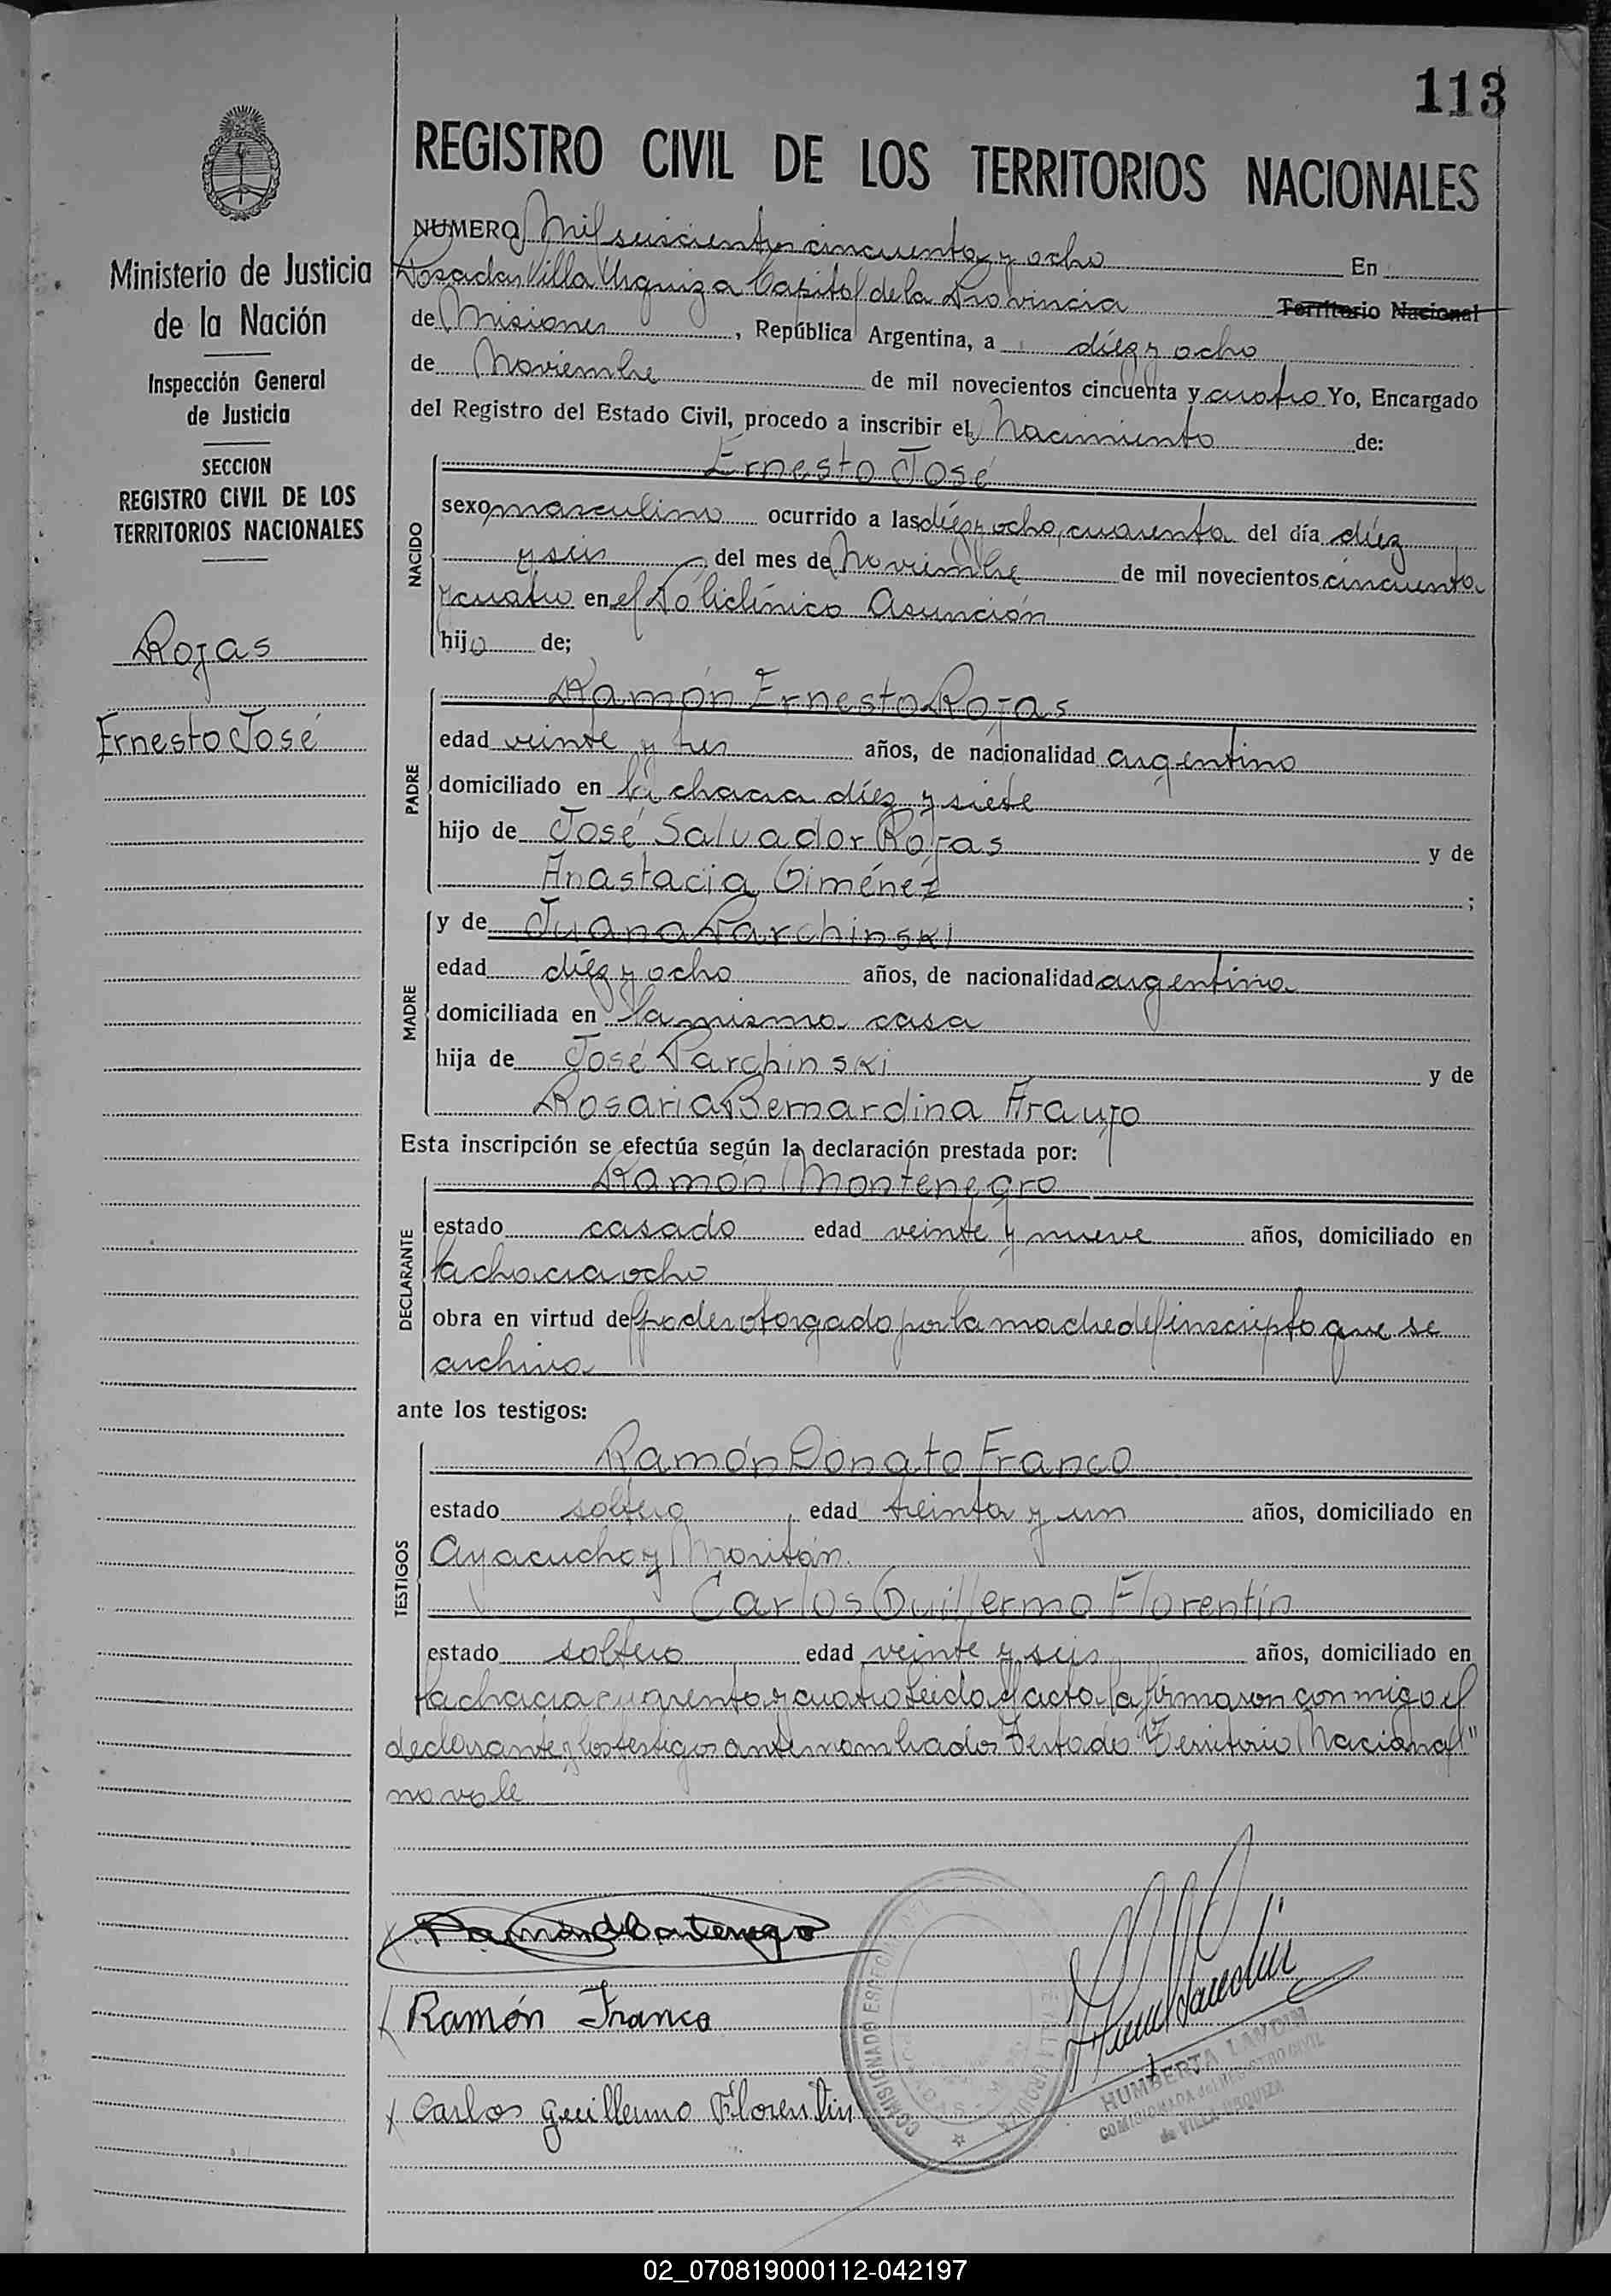 113
REGISTRO CIVIL DE LOS TERRITORIOS NACIONALES
Ministerio de Justicia
de la Nación
Inspección General
de Justicia
SECCION
REGISTRO CIVIL DE LOS
TERRITORIOS NACIONALES
Rojas
Ernesto José
NUMERO Mil seiscientos cincuenta y ocho En
Posadas Villa Urquiza Capital de la Provincia Territorio Nacional
de Misiones, República Argentina, a diez y ocho
de Noviembre de mil novecientos cincuenta y cuatro Yo, Encargado
del Registro del Estado Civil, procedo a inscribir el Nacimiento de:
NACIDO
Ernesto José
sexo masculino ocurrido a las diez y ocho, cuarenta del día diez
y seis del mes de Noviembre de mil novecientos cincuenta
y cuatro en el Policlínico Asunción
hijo de;
PADRE
Ramón Ernesto Rojas
edad veinte y tres años, de nacionalidad argentino
domiciliado en la chacra diez y siete
hijo de José Salvador Rojas y de
Anastacia Giménez ;
MADRE
y de Juana Parchinski
edad diez y ocho años, de nacionalidad argentina
domiciliada en la misma casa
hija de José Parchinski y de
Rosaria Bernardina Araujo
Esta inscripción se efectúa según la declaración prestada por:
DECLARANTE
Ramón Montenegro
estado casado edad veinte y nueve años, domiciliado en
la chacra ocho
obra en virtud del poder otorgado por la madre del inscripto que se
archiva
ante los testigos:
TESTIGOS
Ramón Donato Franco
estado soltero edad treinta y un años, domiciliado en
Ayacucho y Moritán
Carlos Guillermo Florentín
estado soltero edad veinte y seis años, domiciliado en
la chacra cuarenta y cuatro Leída el acta la firmaron conmigo el
declarante y los testigos antes nombrados Testado "Territorio Nacional"
no vale
Ramón Montenegro
x Ramón Franco
x Carlos Guillermo Florentin
COMISIONADO ESPECIAL
VILLA URQUIZA
HUMBERTA LANDIN
COMISIONADA del REGISTRO CIVIL
de VILLA URQUIZA
02_070819000112-042197